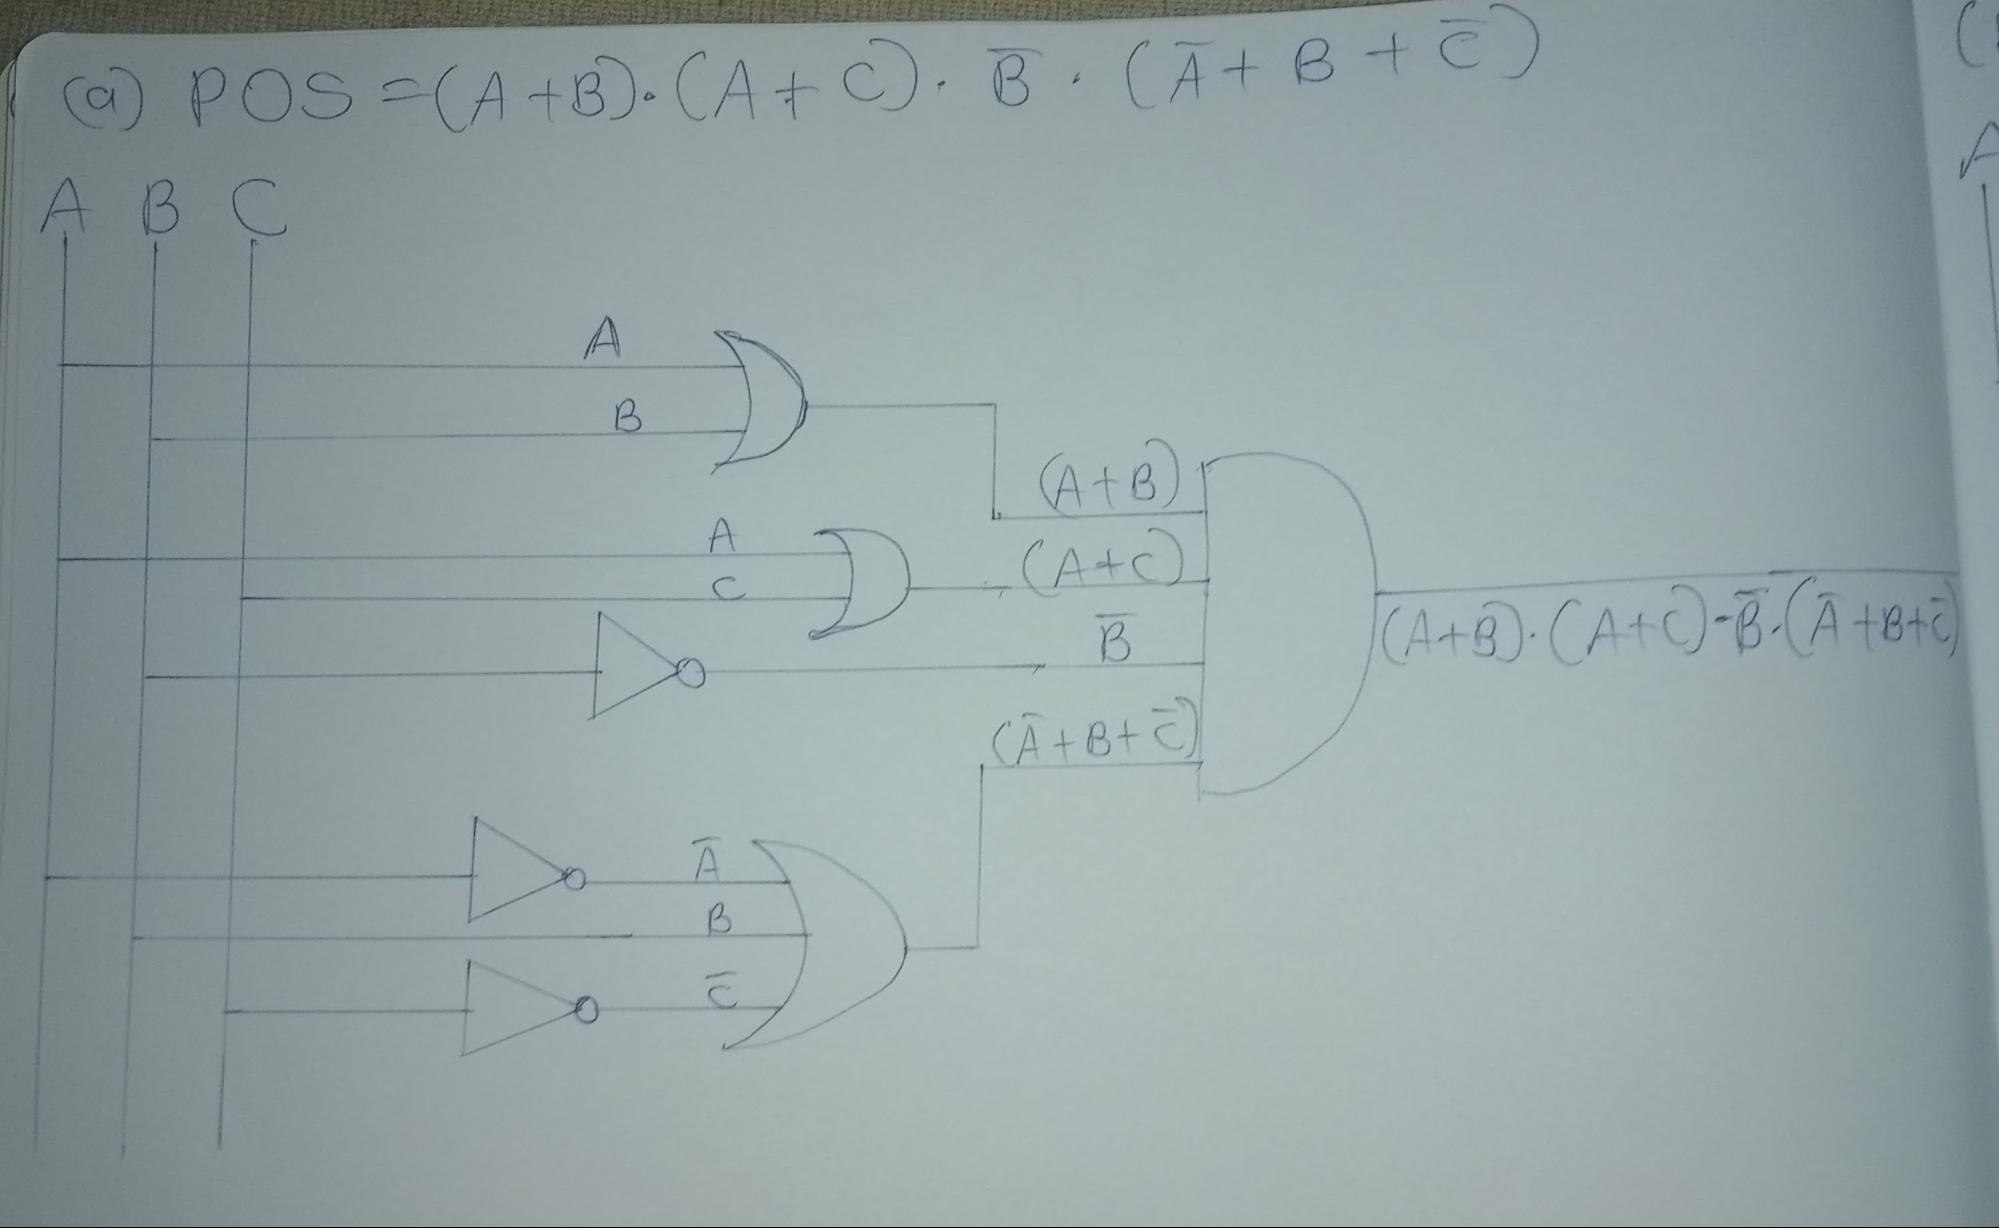 (a) POS = (A+B)·(A+C)·B̅·(A̅+B+C̅)
A B C
A
B
(A+B)
A
(A+C)
C
B̅
(A̅+B+C̅)
(A+B)·(A+C)·B̅·(A̅+B+C̅)
A̅
B
C̅
(
A